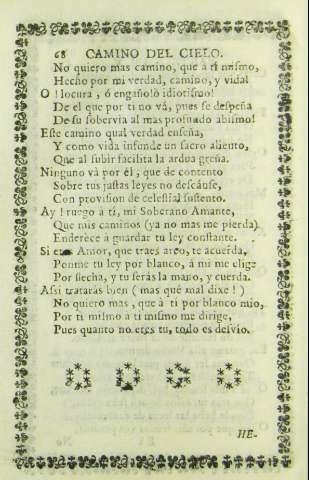 68 CAMINO DEL CIELO.
No quiero mas camino, que à ti mismo,
Hecho por mi verdad, camino, y vida!
O! locura, ó engañoso idiotismo!
De el que por ti no vá, pues se despeña
De su sobervia al mas profundo abismo!
Este camino qual verdad enseña,
Y como vida infunde un sacro aliento,
Que al subir facilita la ardua greña.
Ninguno vá por él, que de contento
Sobre tus justas leyes no descáuse,
Con provision de celestial sustento.
Ay! ruego à ti, mi Soberano Amante,
Que mis caminos (ya no mas me pierda)
Enderece à guardar tu ley constante.
Si eres Amor, que traes arco, te acuerda,
Ponme tu ley por blanco, á mi me elige
Por flecha, y tu serás la mano, y cuerda.
Assi tratarás bien (mas qué mal dixe!)
No quiero mas, que à ti por blanco mio,
Por ti mismo a ti mismo me dirige,
Pues quanto no eres tu, todo es desvio.
HE-